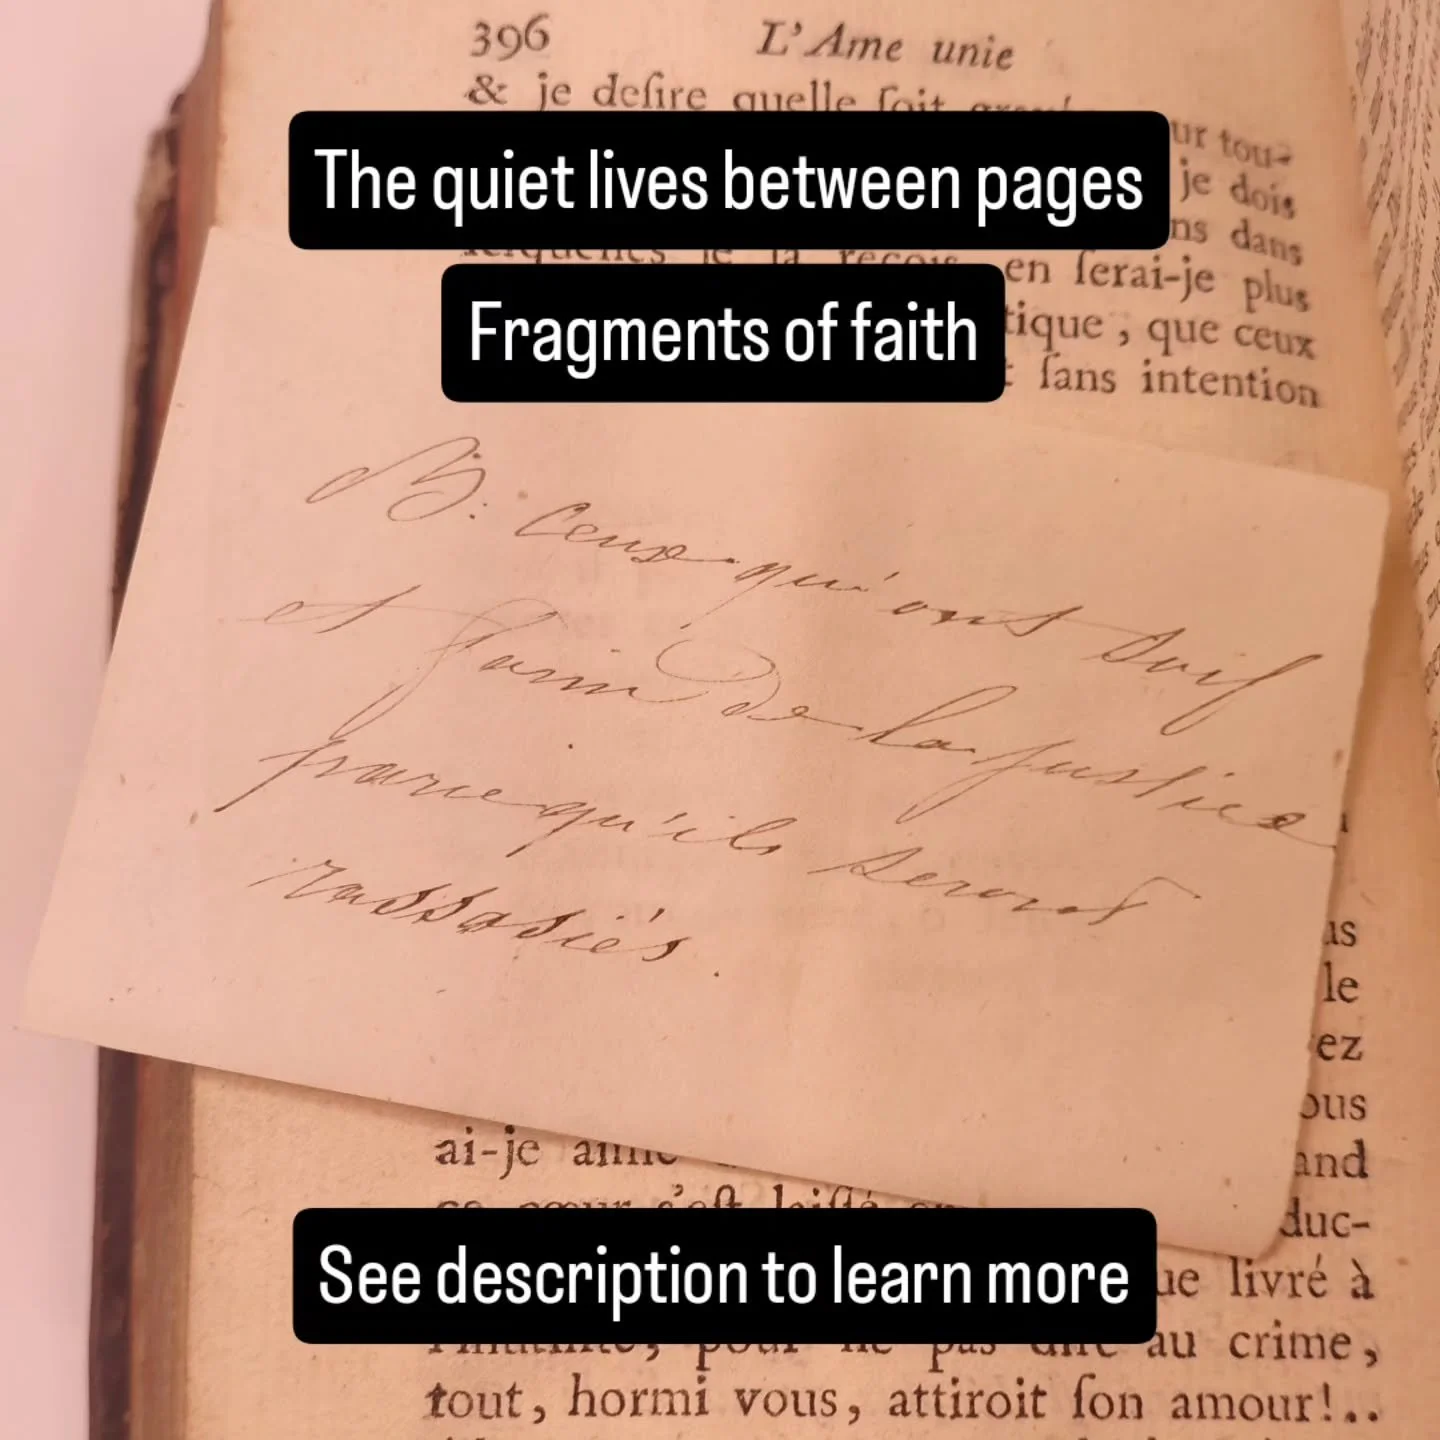 396 L'Ame unie
& je deſire quelle ſoit
ur tou-
The quiet lives between pages
je dois
ns dans
je la reçois, en ſerai-je plus
Fragments of faith
tique, que ceux
ſans intention
B: Ceux qu'ont soif
et faim de la justice
parcequ'ils seront
rassasiés.
us
le
ez
ous
and
ai-je aimé
duc-
ce cœur s'eſt laiſſé
See description to learn more
ue livré à
pour ne pas dire au crime,
tout, hormi vous, attiroit ſon amour!..